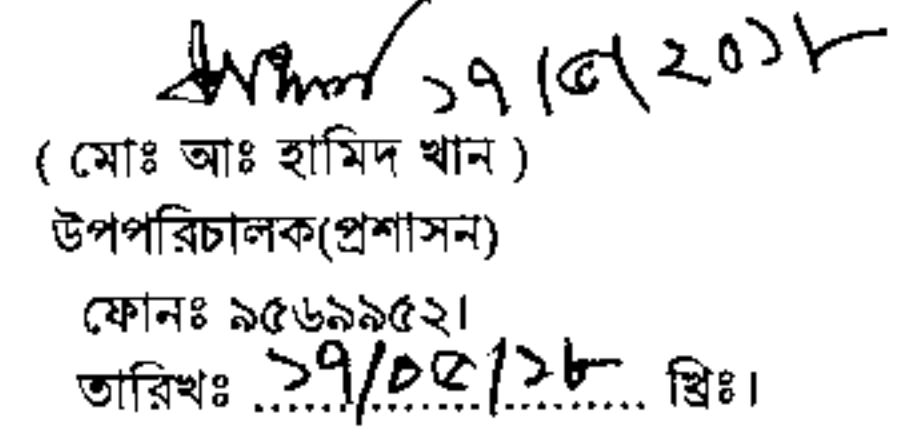 ১৭/৫/২০১৮
( মোঃ আঃ হামিদ খান )
উপপরিচালক(প্রশাসন)
ফোনঃ ৯৫৬৯৯৫২।
তারিখঃ ১৭/০৫/১৮ খ্রিঃ।